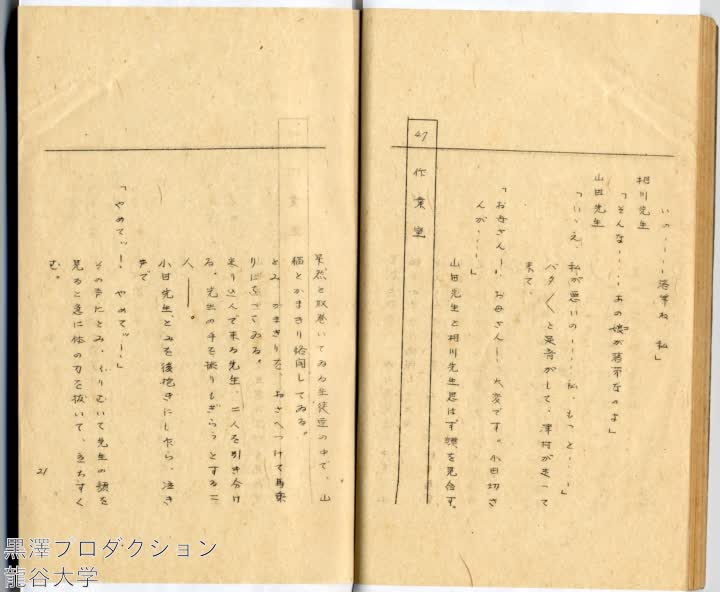 いの……落第ね 私」
相川先生
「そんな……あの娘が落第なのよ」
山田先生
「いゝえ、私が悪いの……私、もっと……」
バタ〱と足音がして、津村が走って
来て、
「お母さん！ お母さん！ 大変です。小田切さ
んが……」
山田先生と相川先生思はず顔を見合す。
47 作業室
呆然と取巻いてゐる生徒達の中で、山
猫とかまきり格闘してゐる。
とみ、かまきりを、おさへつけて馬乗
りになってゐる。
走り込んで来る先生、二人を引き分け
る。先生の手を振りもぎらうとする二
人――。
小田先生、とみを後抱きにし乍ら、泣き
声で
「やめてッ！ やめてッ！」
その声にとみ、ふりむいて先生の顔を
見ると急に体の力を抜いて、立ちすく
む。
21
黒澤プロダクション
龍谷大学